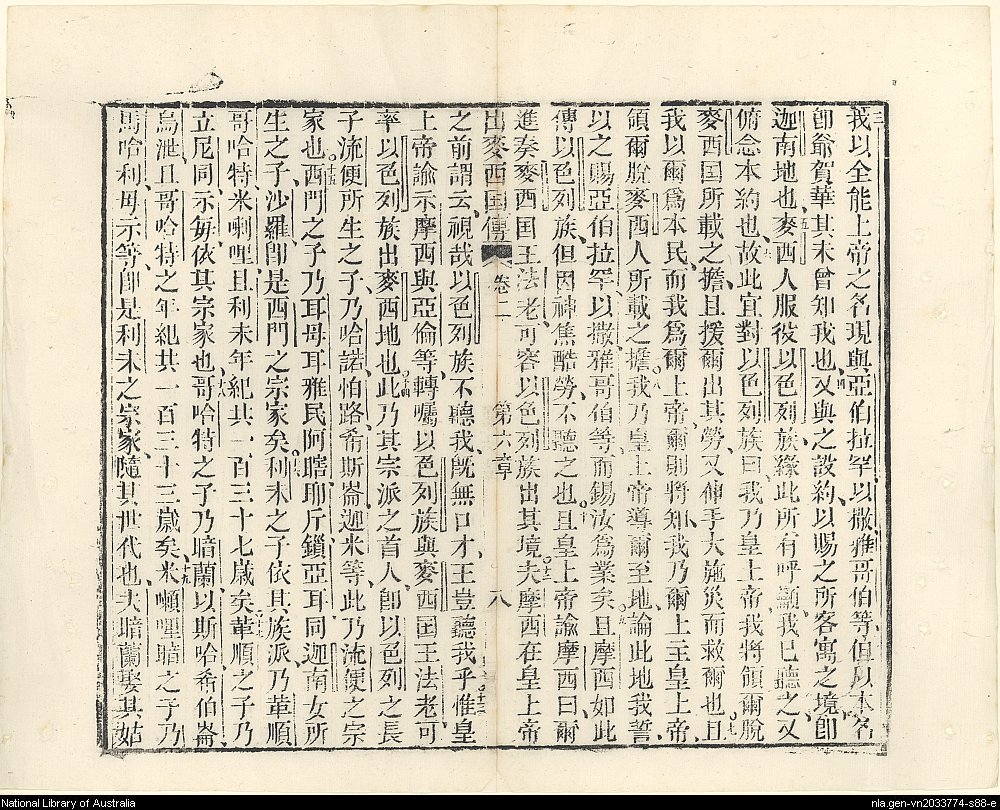 三我以全能上帝之名現與亞伯拉罕以撒雅哥伯等但以本名
卽爺賀華其未曾知我也四又與之設約以賜之所客寓之境卽
迦南地也五麥西人服役以色列族緣此所有呼籲我已聽之又
俯念本約也六故此宜對以色列族曰我乃皇上帝我將領爾脫
麥西国所載之擔且援爾出其勞又伸手大施災而救爾也七且
我以爾爲本民而我爲爾上帝爾則將知我乃爾上主皇上帝
領爾脫麥西人所載之擔八我乃皇上帝導爾至地論此地我誓
以之賜亞伯拉罕以撒雅哥伯等而錫汝爲業矣九且摩西如此
傳以色列族但因神焦酷勞不聽之也十且皇上帝諭摩西曰爾
進奏麥西国王法老可容以色列族出其境十二夫摩西在皇上帝
出麥西国傳 卷二 第六章 八
之前謂云視哉以色列族不聽我旣無口才王豈聽我乎十三惟皇
上帝諭示摩西與亞倫等轉囑以色列族與麥西国王法老可
率以色列族出麥西地也十四此乃其宗派之首人卽以色列之長
子流便所生之子乃哈諾怕路希斯崙迦米等此乃流便之宗
家也十五西門之子乃耳母耳雅民阿瞎耶斤鎖亞耳同迦南女所
生之子沙羅卽是西門之宗家矣十六利未之子依其族派乃革順
哥哈特米喇哩且利未年紀共一百三十七歲矣十七革順之子乃
立尼同示每依其宗家也十八哥哈特之子乃暗蘭以斯哈希伯崙
烏泄且哥哈特之年紀共一百三十三歲矣十九米喇哩之子乃
馬哈利母示等卽是利未之宗家隨其世代也夫暗蘭娶其姑